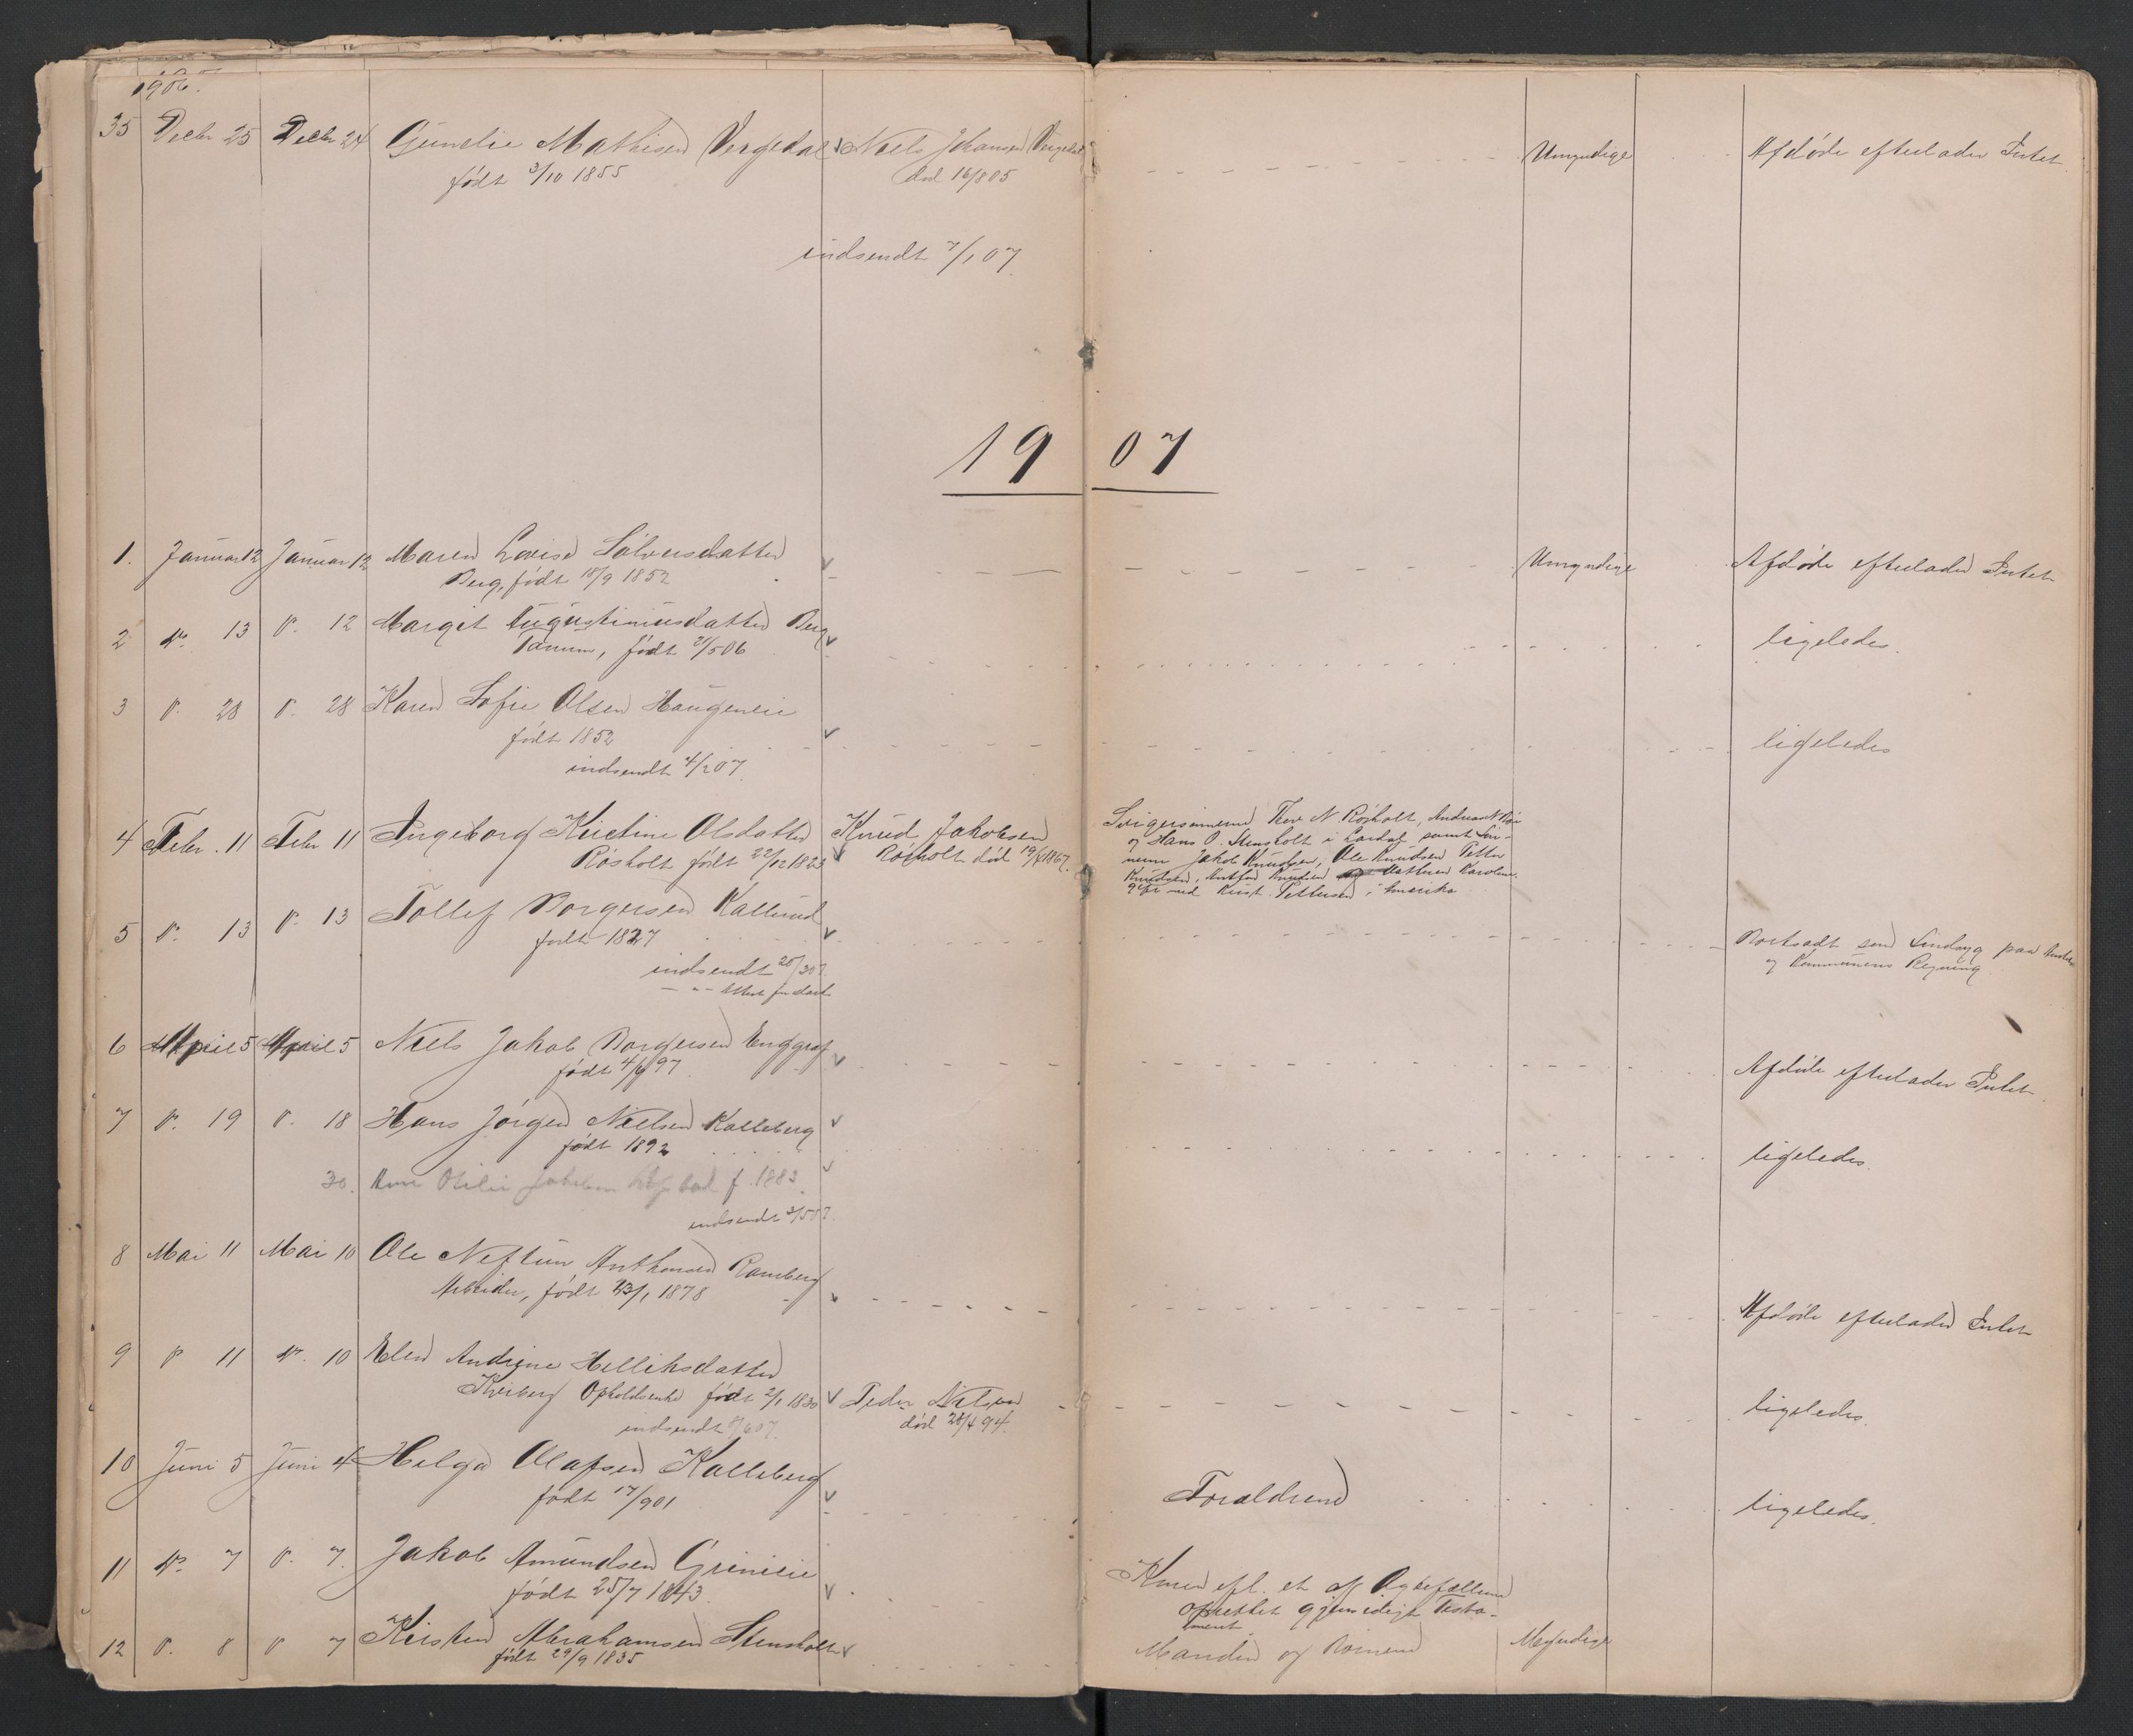 1906.
35 Decbr 25 Decbr 24 Gunelie Mathisen Vergedal Niels Johansen Vergedal Umyndige Afdøde efterlader Intet
født 3/10 1855 død 16/8 05
indsendt 7/1 07.
1907
1. Januar 12 Januar 12 Maren Lovise Sølversdatter Umyndige Afdøde efterlader Intet
Berg, født 18/9 1852
2 do. 13 do. 12 Margit Augustiniusdatter Berg ligeledes.
Tanum, født 2/5 06
3 do. 28 do. 28 Karen Sofie Olsen Haugeneie ligeledes
født 1852
indsendt 4/2 07.
4 Febr. 11 Febr 11 Ingeborg Kirstine Olsdatter Knud Jakobsen
Røsholt født 22/12 1823 Røsholt død 19/4 1867.
Svigersønnerne Thov N Røsholt,
og Hans O. Stensholt i Lardal, samt Søn-
nerne Jakob Knudsen, Ole Knudsen Petter
Knudsen, Knudsen og Datteren Karoline
gift med Krist. Pettersen i Amerika
5 do. 13 do. 13 Tollef Borgersen Kallerud
født 1827
Bortsadt som Sindsyg paa
og Kommunens Regning
indsendt 20/2 07.
6 April 5 April 5 Niels Jakob Borgersen Enggrav Afdøde efterlader Intet.
født 4/9 97
7 do. 19 do. 18 Hans Jørgen Nielsen Kalleberg ligeledes.
født 1892
30. Otilie f. 1883.
indsendt 3/5 07.
8 Mai 11 Mai 10 Ole Neftun Anthonsen Ramberg Afdøde efterlader Intet
Arbeider, født 23/1 1878
9 do 11 do. 10 Elen Andrine Helliksdatter ligeledes.
Kreberg Opholdsenke født 2/1 1830 Peder Nilsen
død 28/4 94.
indsendt 8/6 07.
10 Juni 5 Juni 4 Helga Olafsen Kalleberg Foraldrene ligeledes.
født 17/9 01
11 do. 7 do. 7. Jakob Amundsen Grinieie
født 25/7 1843.
Konen efl. et af Ægtefællerne
oprettet gjensidigt Testa-
ment.
12 do. 8 do 7 Kirsten Abrahamsen Stensholt Manden og Børnene Myndige
født 29/9 1835